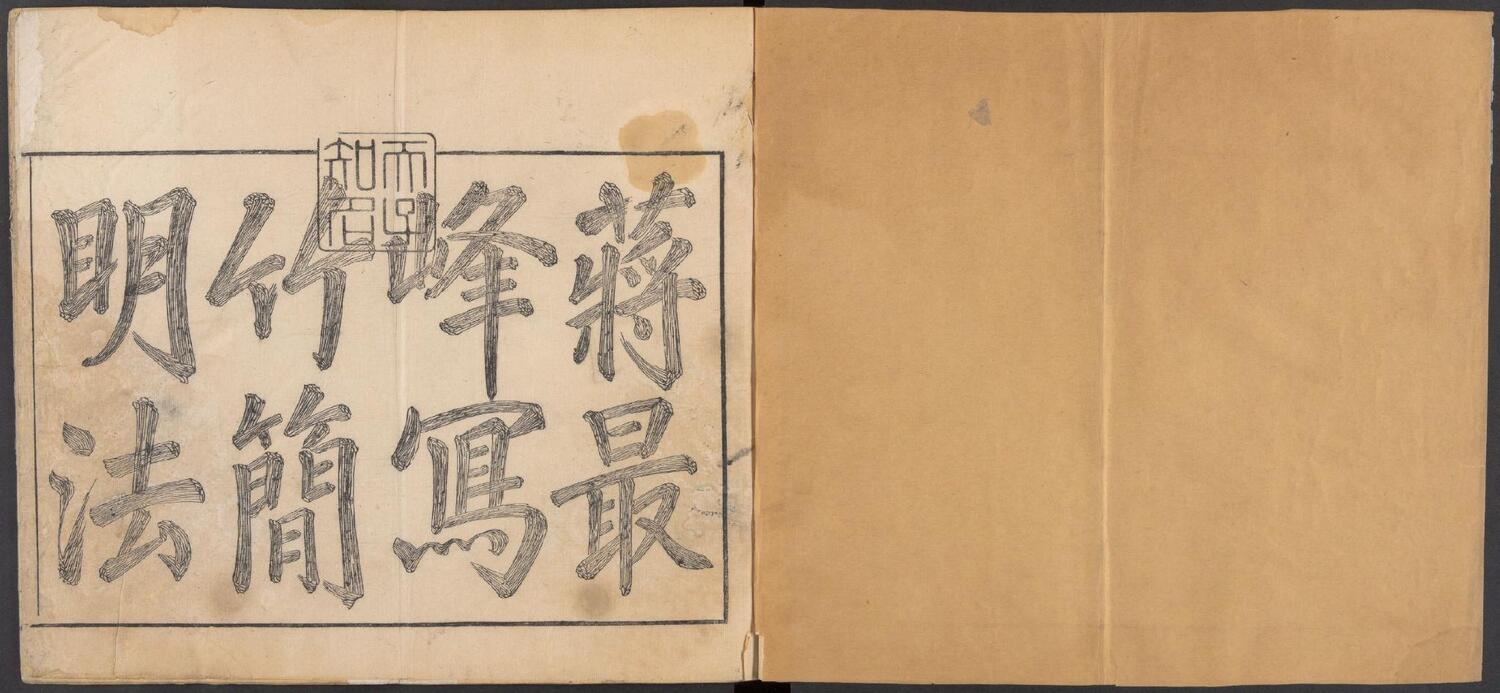 蔣最
峰寫
竹簡
明法